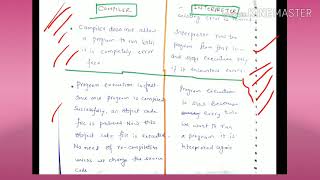 COMPILER
Compiler does not allow
a program to run until
it is completely error
free
Program execution is fast
Since once program is compiled
Successfully, an object code
file is produced. Now this
object code file is executed
No need of re-compilation
unless we change the source
code
INTERPRETER
existing error is
Interpreter run the
program from first line
and stops execution only
if it encounters errors
Program execution
is slow because
every time
we want to run
a program it is
interpreted again
MASTER